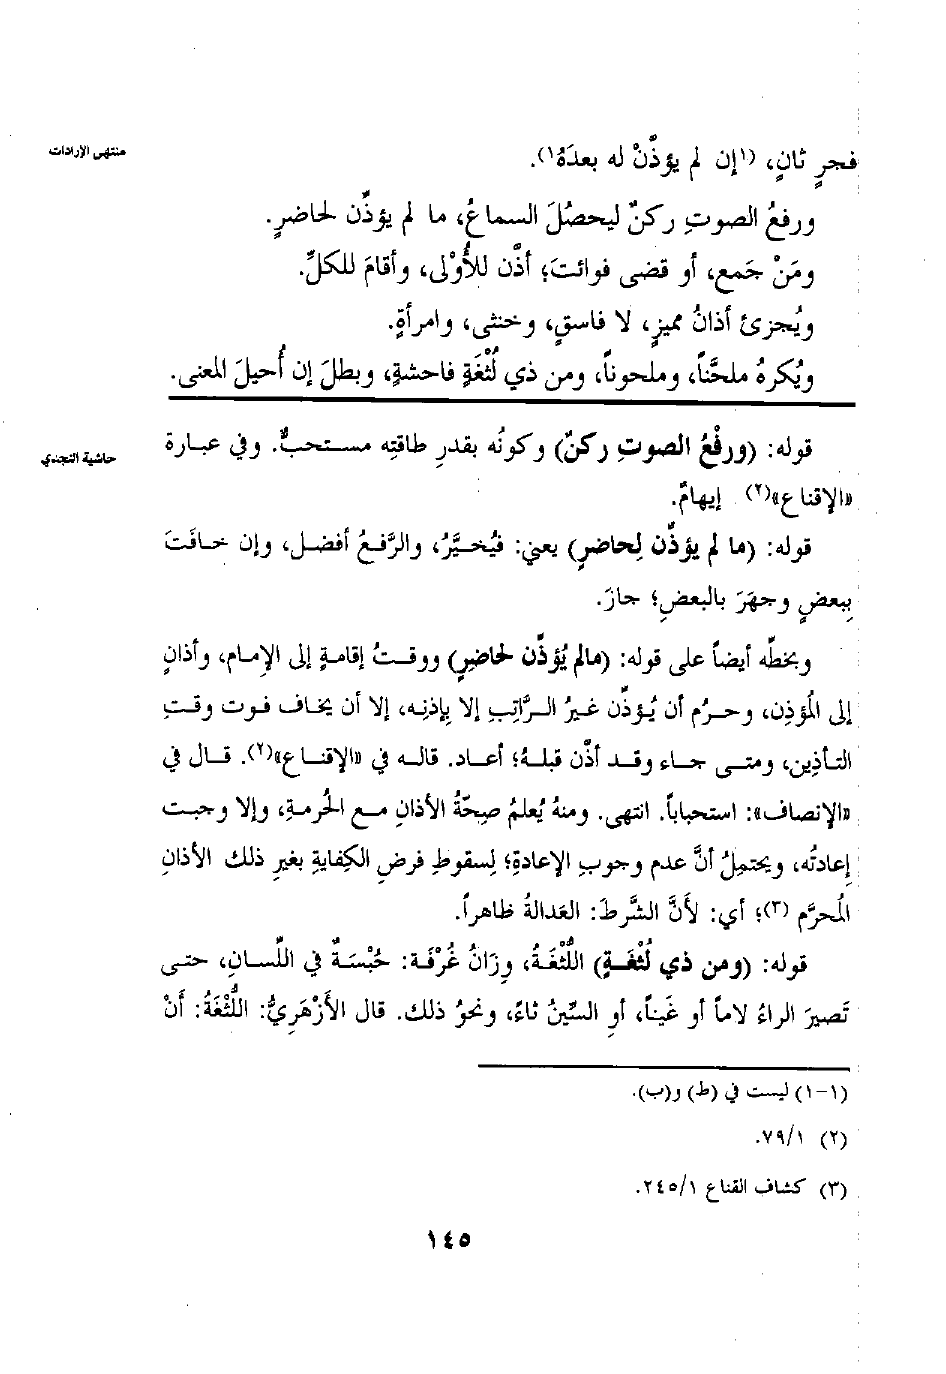 منتهى الإرادات
فجرٍ ثانٍ، (١إن لم يؤذَّنْ له بعدَهُ١).
ورفعُ الصوتِ ركنٌ ليحصُلَ السماعُ، ما لم يؤذِّن لحاضرٍ.
ومَنْ جَمع، أو قضى فوائتَ؛ أذَّن للأُوْلى، وأقامَ للكلِّ.
ويُجزئ أذانُ مميزٍ، لا فاسقٍ، وخنثى، وامرأةٍ.
ويُكرهُ ملحَّناً، وملحوناً، ومن ذي لُثْغَةٍ فاحشةٍ، وبطلَ إن أُحيلَ المعنى.
حاشية النجدي
قوله: (ورفْعُ الصوتِ ركنٌ) وكونُه بقدرِ طاقتِه مستحبٌّ. وفي عبارة
«الإقناع»(٢) إيهامٌ.
قوله: (ما لم يؤذِّن لِحاضرٍ) يعني: فيُخيَّرُ، والرَّفعُ أفضل، وإن خافَتَ
بِبعضٍ وجهَرَ بالبعضِ؛ جازَ.
وبخطِّه أيضاً على قوله: (مالم يُؤذِّن لحاضِرٍ) ووقتُ إقامةٍ إلى الإمام، وأذانٍ
إلى المُؤذِن، وحرُم أن يُؤذِّن غيرُ الرَّاتِبِ إلا بِإذنِه، إلا أن يخاف فوت وقتِ
التأذِين، ومتى جاء وقد أذَّن قبلهُ؛ أعاد. قاله في «الإقناع»(٢). قال في
«الإنصاف»: استحباباً. انتهى. ومنهُ يُعلمُ صِحّةُ الأذانِ مع الحُرمةِ، وإلا وجبت
إعادتُه، ويحتمِلُ أنَّ عدم وجوبِ الإعادةِ؛ لِسقوطِ فرضِ الكِفايةِ بغيرِ ذلك الأذانِ
المُحرَّم (٣)؛ أي: لأنَّ الشَّرطَ: العَدالةُ ظاهراً.
قوله: (ومن ذي لُثْغَةٍ) اللُّثْغَةُ، وِزَانُ غُرْفَة: حُبْسَةٌ في اللِّسانِ، حتى
تَصيرَ الراءُ لاماً أو غَيناً، أوِ السِّينُ ثاءً، ونحوُ ذلك. قال الأزْهَرِيُّ: اللُّثْغَةُ: أنْ
(١-١) ليست في (ط) و(ب).
(٢) ٧٩/١.
(٣) كشاف القناع ٢٤٥/١.
١٤٥